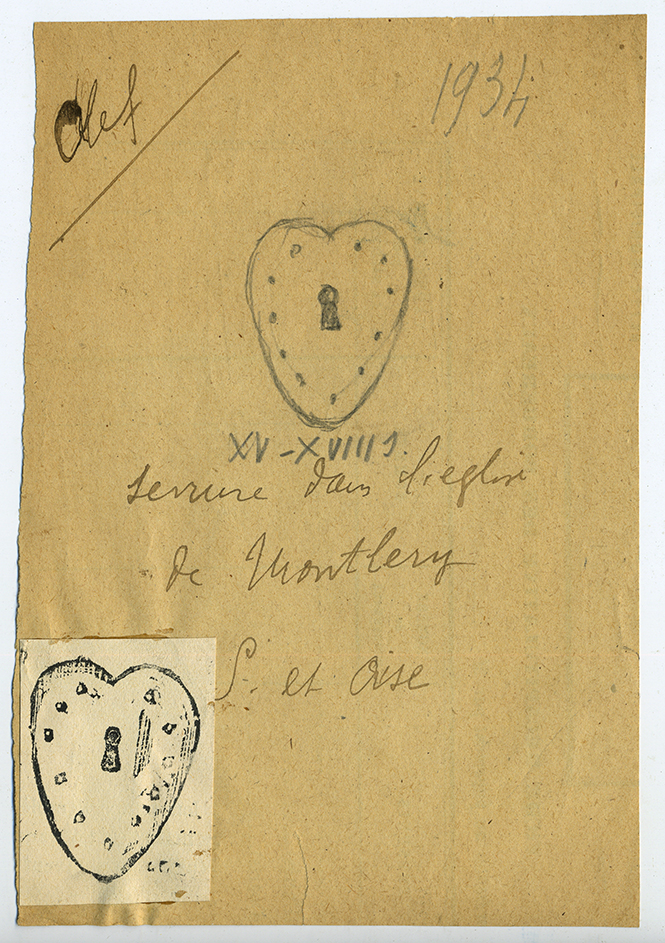 Clef
1934
XV-XVIII S.
serrure dans l'eglise
de Montlery
S. et Oise